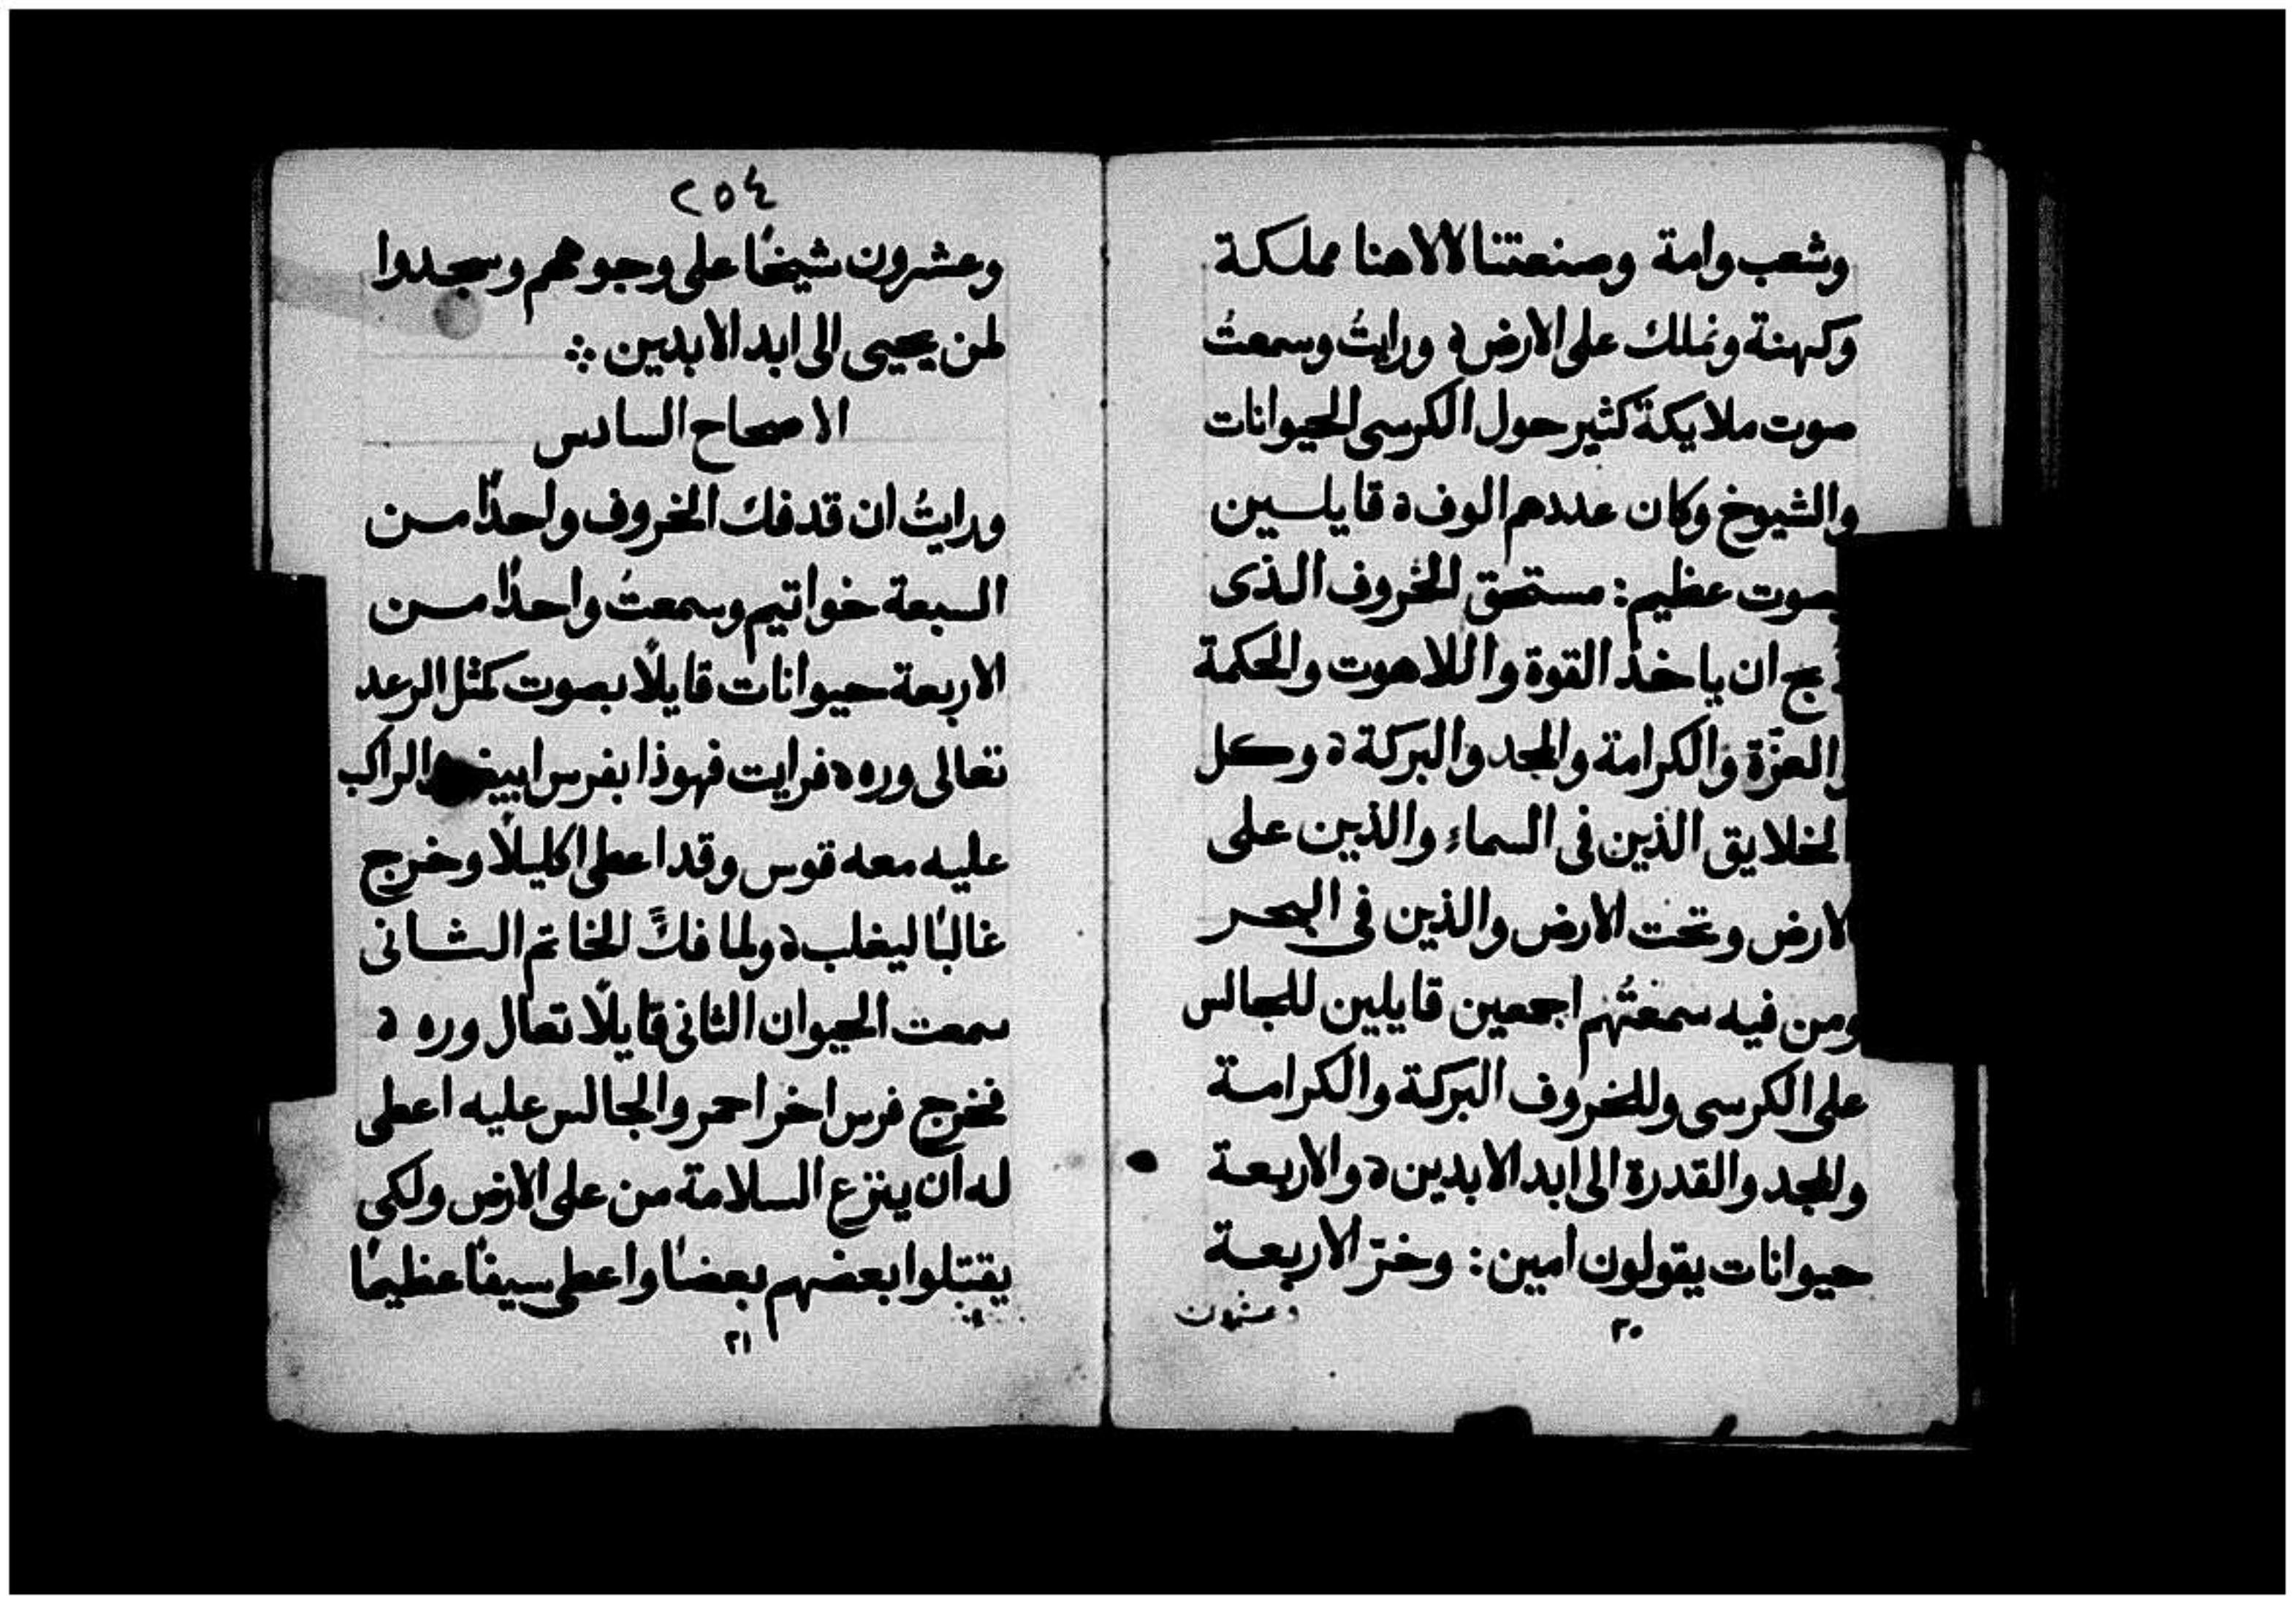 وشعب وامة وصنعتنا لالاهنا مملكة
وكهنة ونملك على الارض ه ورايتُ وسمعتُ
صوت ملايكة كثير حول الكرسى الحيوانات
والشيوخ وكان عددهم الوف ه قايلسين
بصوت عظيم : مستحق الخروف الذى
ذبح ان ياخذ القوة واللاهوت والحكمة
والعزّة والكرامة والمجد والبركة ه وكل
الخلايق الذين فى السماء والذين على
الارض وتحت الارض والذين فى البحر
ومن فيه سمعتُهم اجمعين قايلين للجالس
على الكرسى وللخروف البركة والكرامة
والمجد والقدرة الى ابد الابدين ه والاربعة
حيوانات يقولون امين : وخرّ الاربعة
وعشرون
٢٠
٢٥٤
وعشرون شيخًا على وجوههم وسجدوا
لمن يحيى الى ابد الابدين ⁘
الاصحاح السادس
ورايتُ ان قد فك الخروف واحدًا من
السبعة خواتيم وسمعتُ واحدًا من
الاربعة حيوانات قايلًا بصوت كمثل الرعد
تعالى وره ه فرايت فهوذا بفرس ابيض والراكب
عليه معه قوس وقد اعطى اكليلًا وخرج
غالبًا ليغلب ه ولما فكَّ الخاتم الثانى
سمعت الحيوان الثانى قايلًا تعال وره ه
فخرج فرس اخر احمر والجالس عليه اعطى
له ان ينزع السلامة من على الارض ولكى
يقتتلوا بعضهم بعضًا واعطى سيفًا عظيمًا
٢١